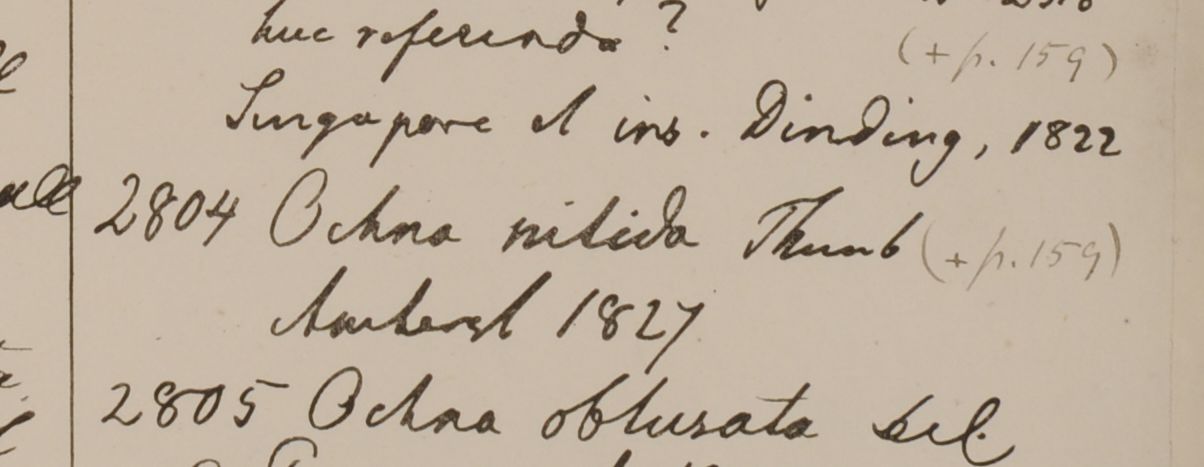 huc referenda? (+p. 159)
Singapore et ins. Dinding, 1822
2804 Ochna nitida Thunb (+p. 159)
Amherst 1827
2805 Ochna obtusata